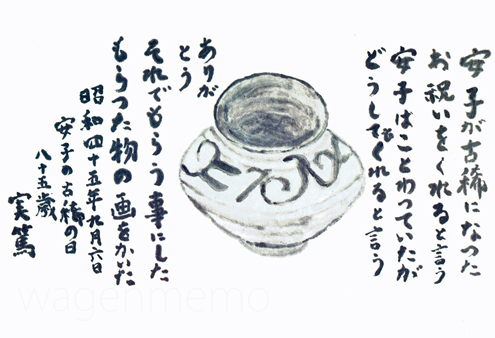 安子が古稀になつた
お祝いをくれると言う
安子はことわつていたが
どうしてもくれると言う
ありが
とう
それでもらう事にした
もらつた物の画をかいた
昭和四十五年九月六日
安子の古稀の日
八十五歳
実篤
wagenmemo